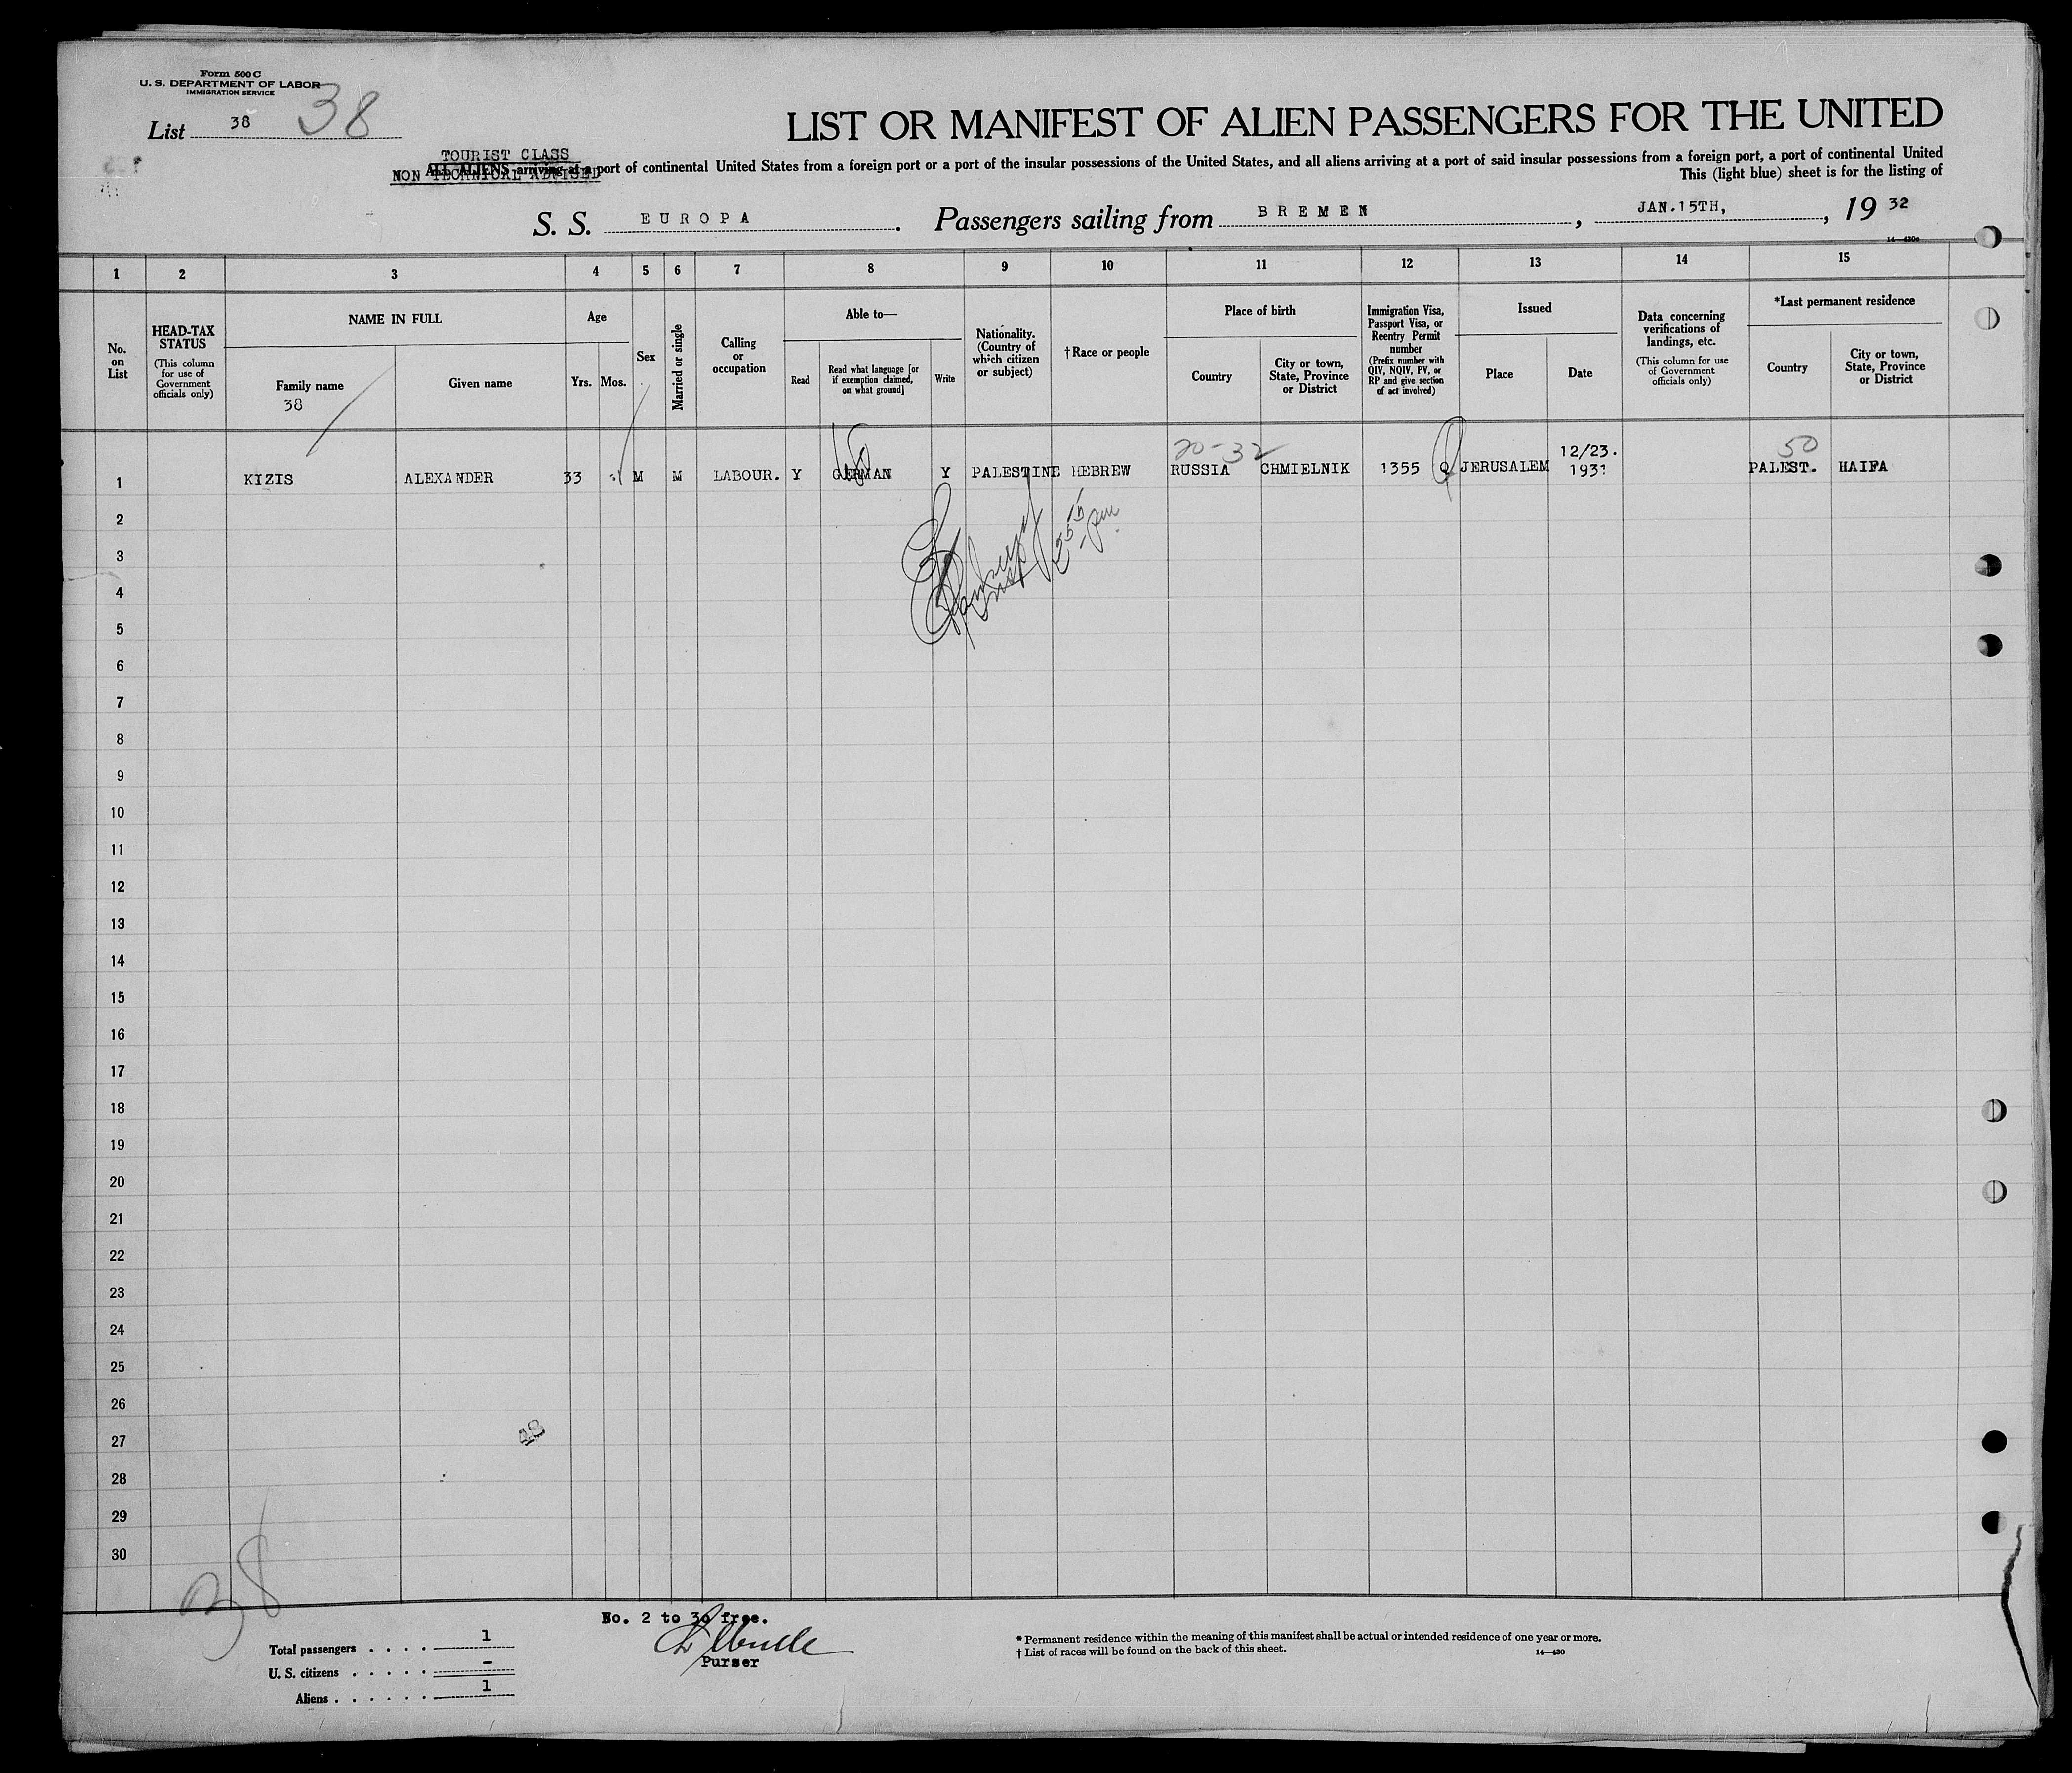 Form 500 C
U. S. DEPARTMENT OF LABOR
IMMIGRATION SERVICE
List 38 38
LIST OR MANIFEST OF ALIEN PASSENGERS FOR THE UNITED
TOURIST CLASS
ALL ALIENS arriving at a port of continental United States from a foreign port or a port of the insular possessions of the United States, and all aliens arriving at a port of said insular possessions from a foreign port, a port of continental United
NON TECHNICAL ADVISED
This (light blue) sheet is for the listing of
S. S. EUROPA. Passengers sailing from BREMEN, JAN.15TH, 19 32
14—430c
1 2 3 4 5 6 7 8 9 10 11 12 13 14 15
No. on List
HEAD-TAX STATUS
(This column for use of Government officials only)
NAME IN FULL
Family name
38
Given name
Age
Yrs. Mos.
Sex
Married or single
Calling or occupation
Able to—
Read
Read what language [or if exemption claimed, on what ground]
Write
Nationality. (Country of which citizen or subject)
†Race or people
Place of birth
Country
City or town, State, Province or District
Immigration Visa, Passport Visa, or Reentry Permit number
(Prefix number with QIV, NQIV, PV, or RP and give section of act involved)
Issued
Place
Date
Data concerning verifications of landings, etc.
(This column for use of Government officials only)
*Last permanent residence
Country
City or town, State, Province or District
20-32 50
1 KIZIS ALEXANDER 33 M M LABOUR. Y GERMAN Y PALESTINE HEBREW RUSSIA CHMIELNIK 1355 Q JERUSALEM 12/23. 1931 PALEST. HAIFA
2
3
4
5
6
7
8
9
10
11
12
13
14
15
16
17
18
19
20
21
22
23
24
25
26
27
28
29
30
38
No. 2 to 30 free.
Purser
Total passengers . . . . 1
U. S. citizens . . . . . –
Aliens . . . . . . 1
* Permanent residence within the meaning of this manifest shall be actual or intended residence of one year or more.
† List of races will be found on the back of this sheet.
14—430